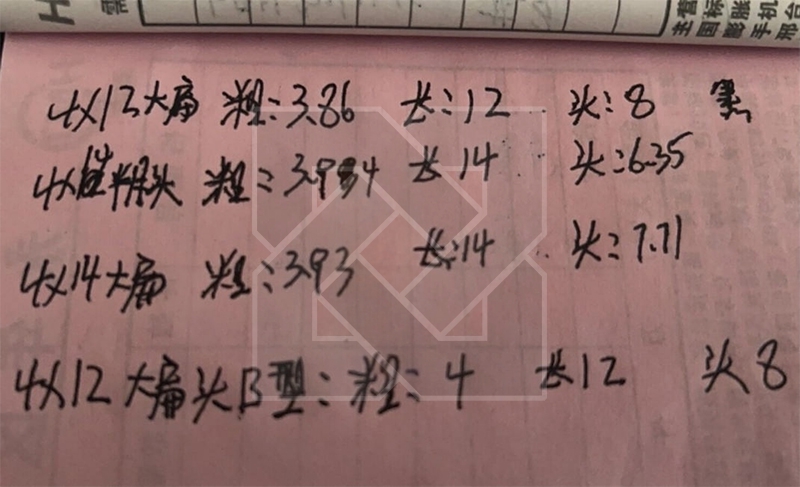 H 需
主营
国标
膨胀
手机
邢台
4x12大扁 粗:3.86 长:12 头:8 黑
4x 半沉头 粗:3.94 长14 头:6.35
4x14大扁 粗:3.93 长:14 头:7.71
4x12大扁头B型: 粗:4 长12 头8